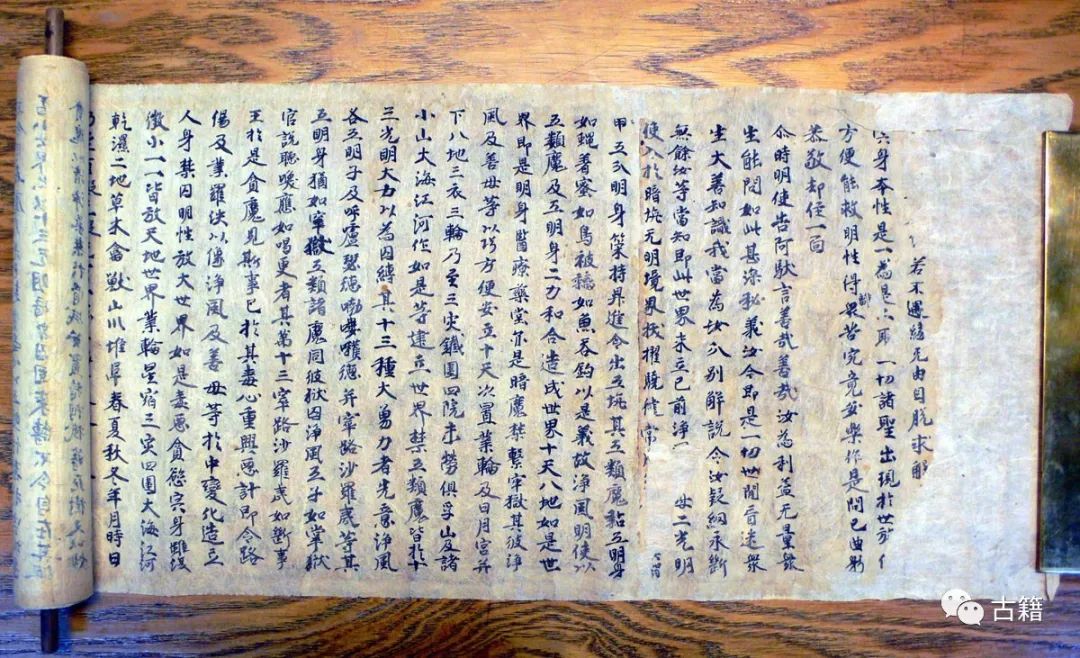 若不遇緣无由自脫求解
宍身本性是一為是二耶一切諸聖出現於世施作
方便能救明性得離眾苦究竟安樂作是問已曲躬
恭敬却住一面
尒時明使告阿馱言善哉善哉汝為利益无量眾
生能問如此甚深秘義汝今即是一切世閒盲迷眾
生大善知識我當為汝分別解說令汝疑網永斷
無餘汝等當知即此世界未立已前淨 母二光明
使入於暗坑无明境界拔擢驍健常
甲五分明身策持昇進令出五坑其五類魔黏五明身
如蠅著蜜如鳥被黐如魚吞鈎以是義故淨風明使以
五類魔及五明身二力和合造成世界十天八地如是世
界即是明身醫療藥堂亦是暗魔禁繫牢獄其彼淨
風及善母等以巧方便安立十天次置業輪及日月宮并
下八地三衣三輪乃至三灾鐵圍四院未勞俱孚山及諸
小山大海江河作如是等建立世界禁五類魔皆於十
三光明大力以為囚縛其十三種大勇力者先意淨風
各五明子及呼嚧瑟德嘞嚄德并窣路沙羅夷等其
五明身猶如牢獄五類諸魔同彼獄囚淨風五子如掌獄
官說聽喚應如喝更者其第十三窣路沙羅夷如斷事
王於是貪魔見斯事已於其毒心重興惡計即令路
傷及業羅泱以像淨風及善母等於中變化造立
人身禁囚明性放大世界如是毒惡貪慾宍身雖復
微小一一皆放天地世界業輪星宿三灾四圍大海江河
乾濕二地草木禽獸山川堆阜春夏秋冬年月時日
古籍